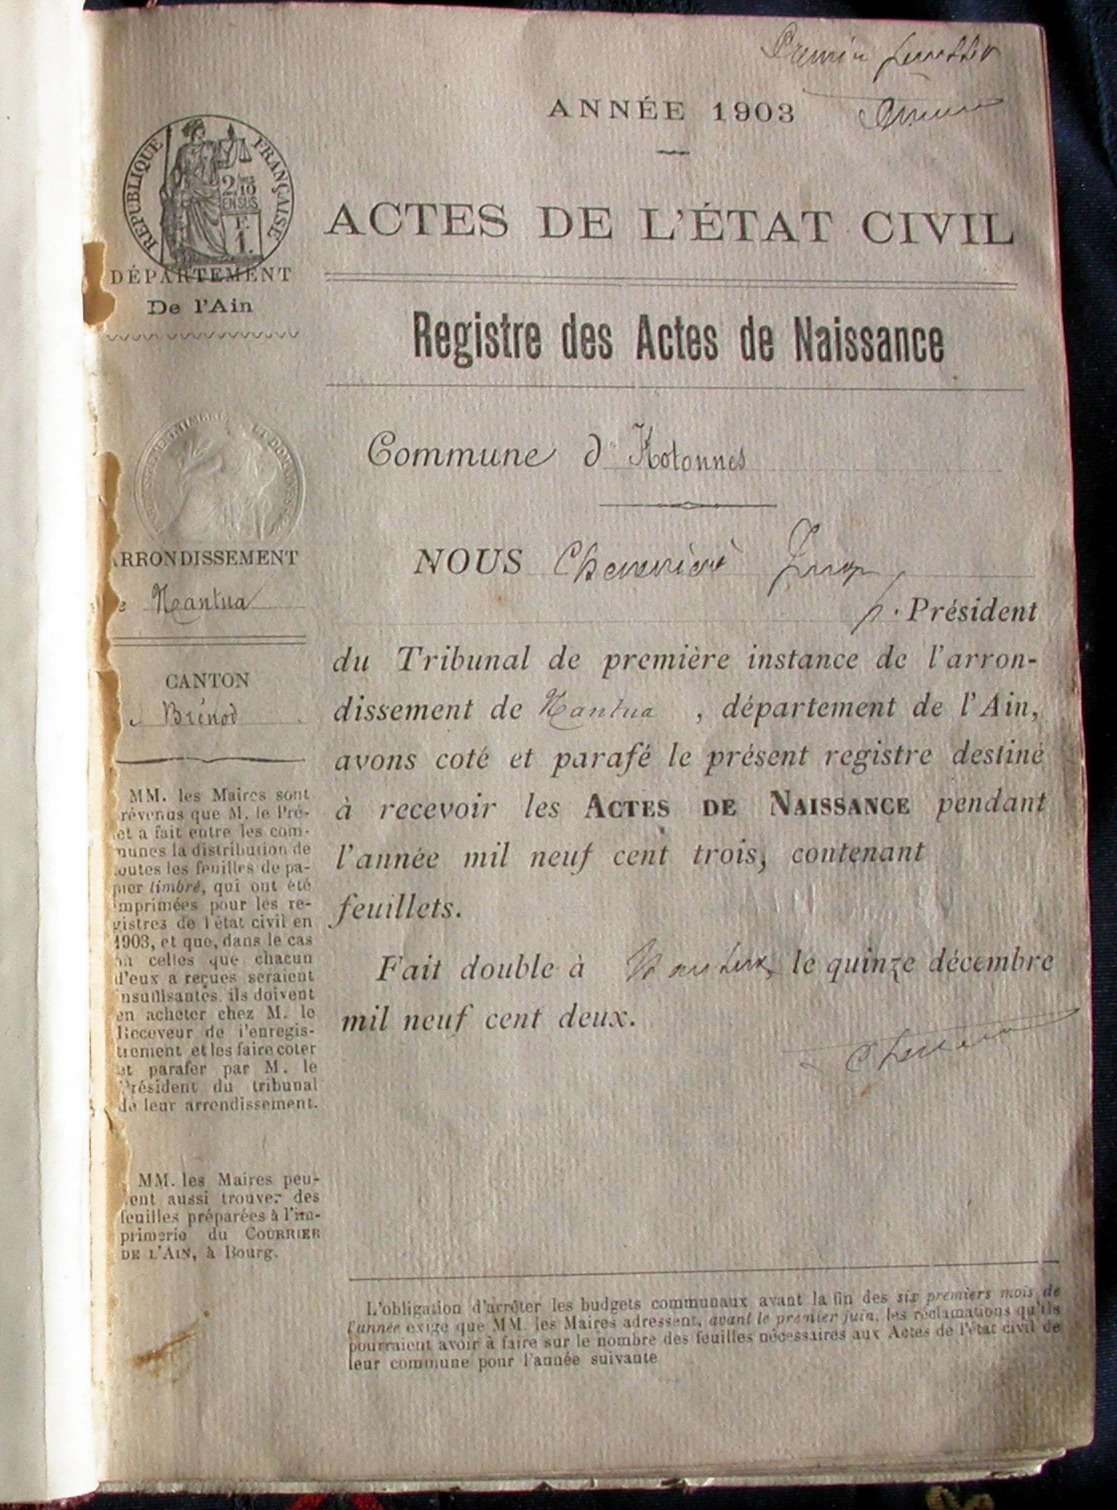 Premier feuillet
ANNÉE 1903
RÉPUBLIQUE FRANÇAISE
2/10 EN SUS
ACTES DE L'ÉTAT CIVIL
DÉPARTEMENT
De l'Ain
Registre des Actes de Naissance
Commune d' Hotonnes
ARRONDISSEMENT
e Nantua
NOUS
p. Président
du Tribunal de première instance de l'arron-
dissement de Nantua, département de l'Ain,
avons coté et parafé le présent registre destiné
à recevoir les ACTES DE NAISSANCE pendant
l'année mil neuf cent trois, contenant
feuillets.
Fait double à Nantua, le quinze décembre
mil neuf cent deux.
CANTON
Brénod
MM. les Maires sont
révenus que M. le Pré-
et a fait entre les com-
munes la distribution de
outes les feuilles de pa-
pier timbré, qui ont été
imprimées pour les re-
gistres de l'état civil en
1903, et que, dans le cas
où celles que chacun
d'eux a reçues seraient
insuffisantes, ils doivent
en acheter chez M. le
Receveur de l'enregis-
trement et les faire coter
et parafer par M. le
Président du tribunal
de leur arrondissement.
MM. les Maires peu-
ent aussi trouver des
feuilles préparées à l'im-
primerie du COURRIER
DE L'AIN, à Bourg.
L'obligation d'arrêter les budgets communaux avant la fin des six premiers mois de
l'année exige que MM. les Maires adressent, avant le premier juin, les réclamations qu'ils
pourraient avoir à faire sur le nombre des feuilles nécessaires aux Actes de l'état civil de
leur commune pour l'année suivante